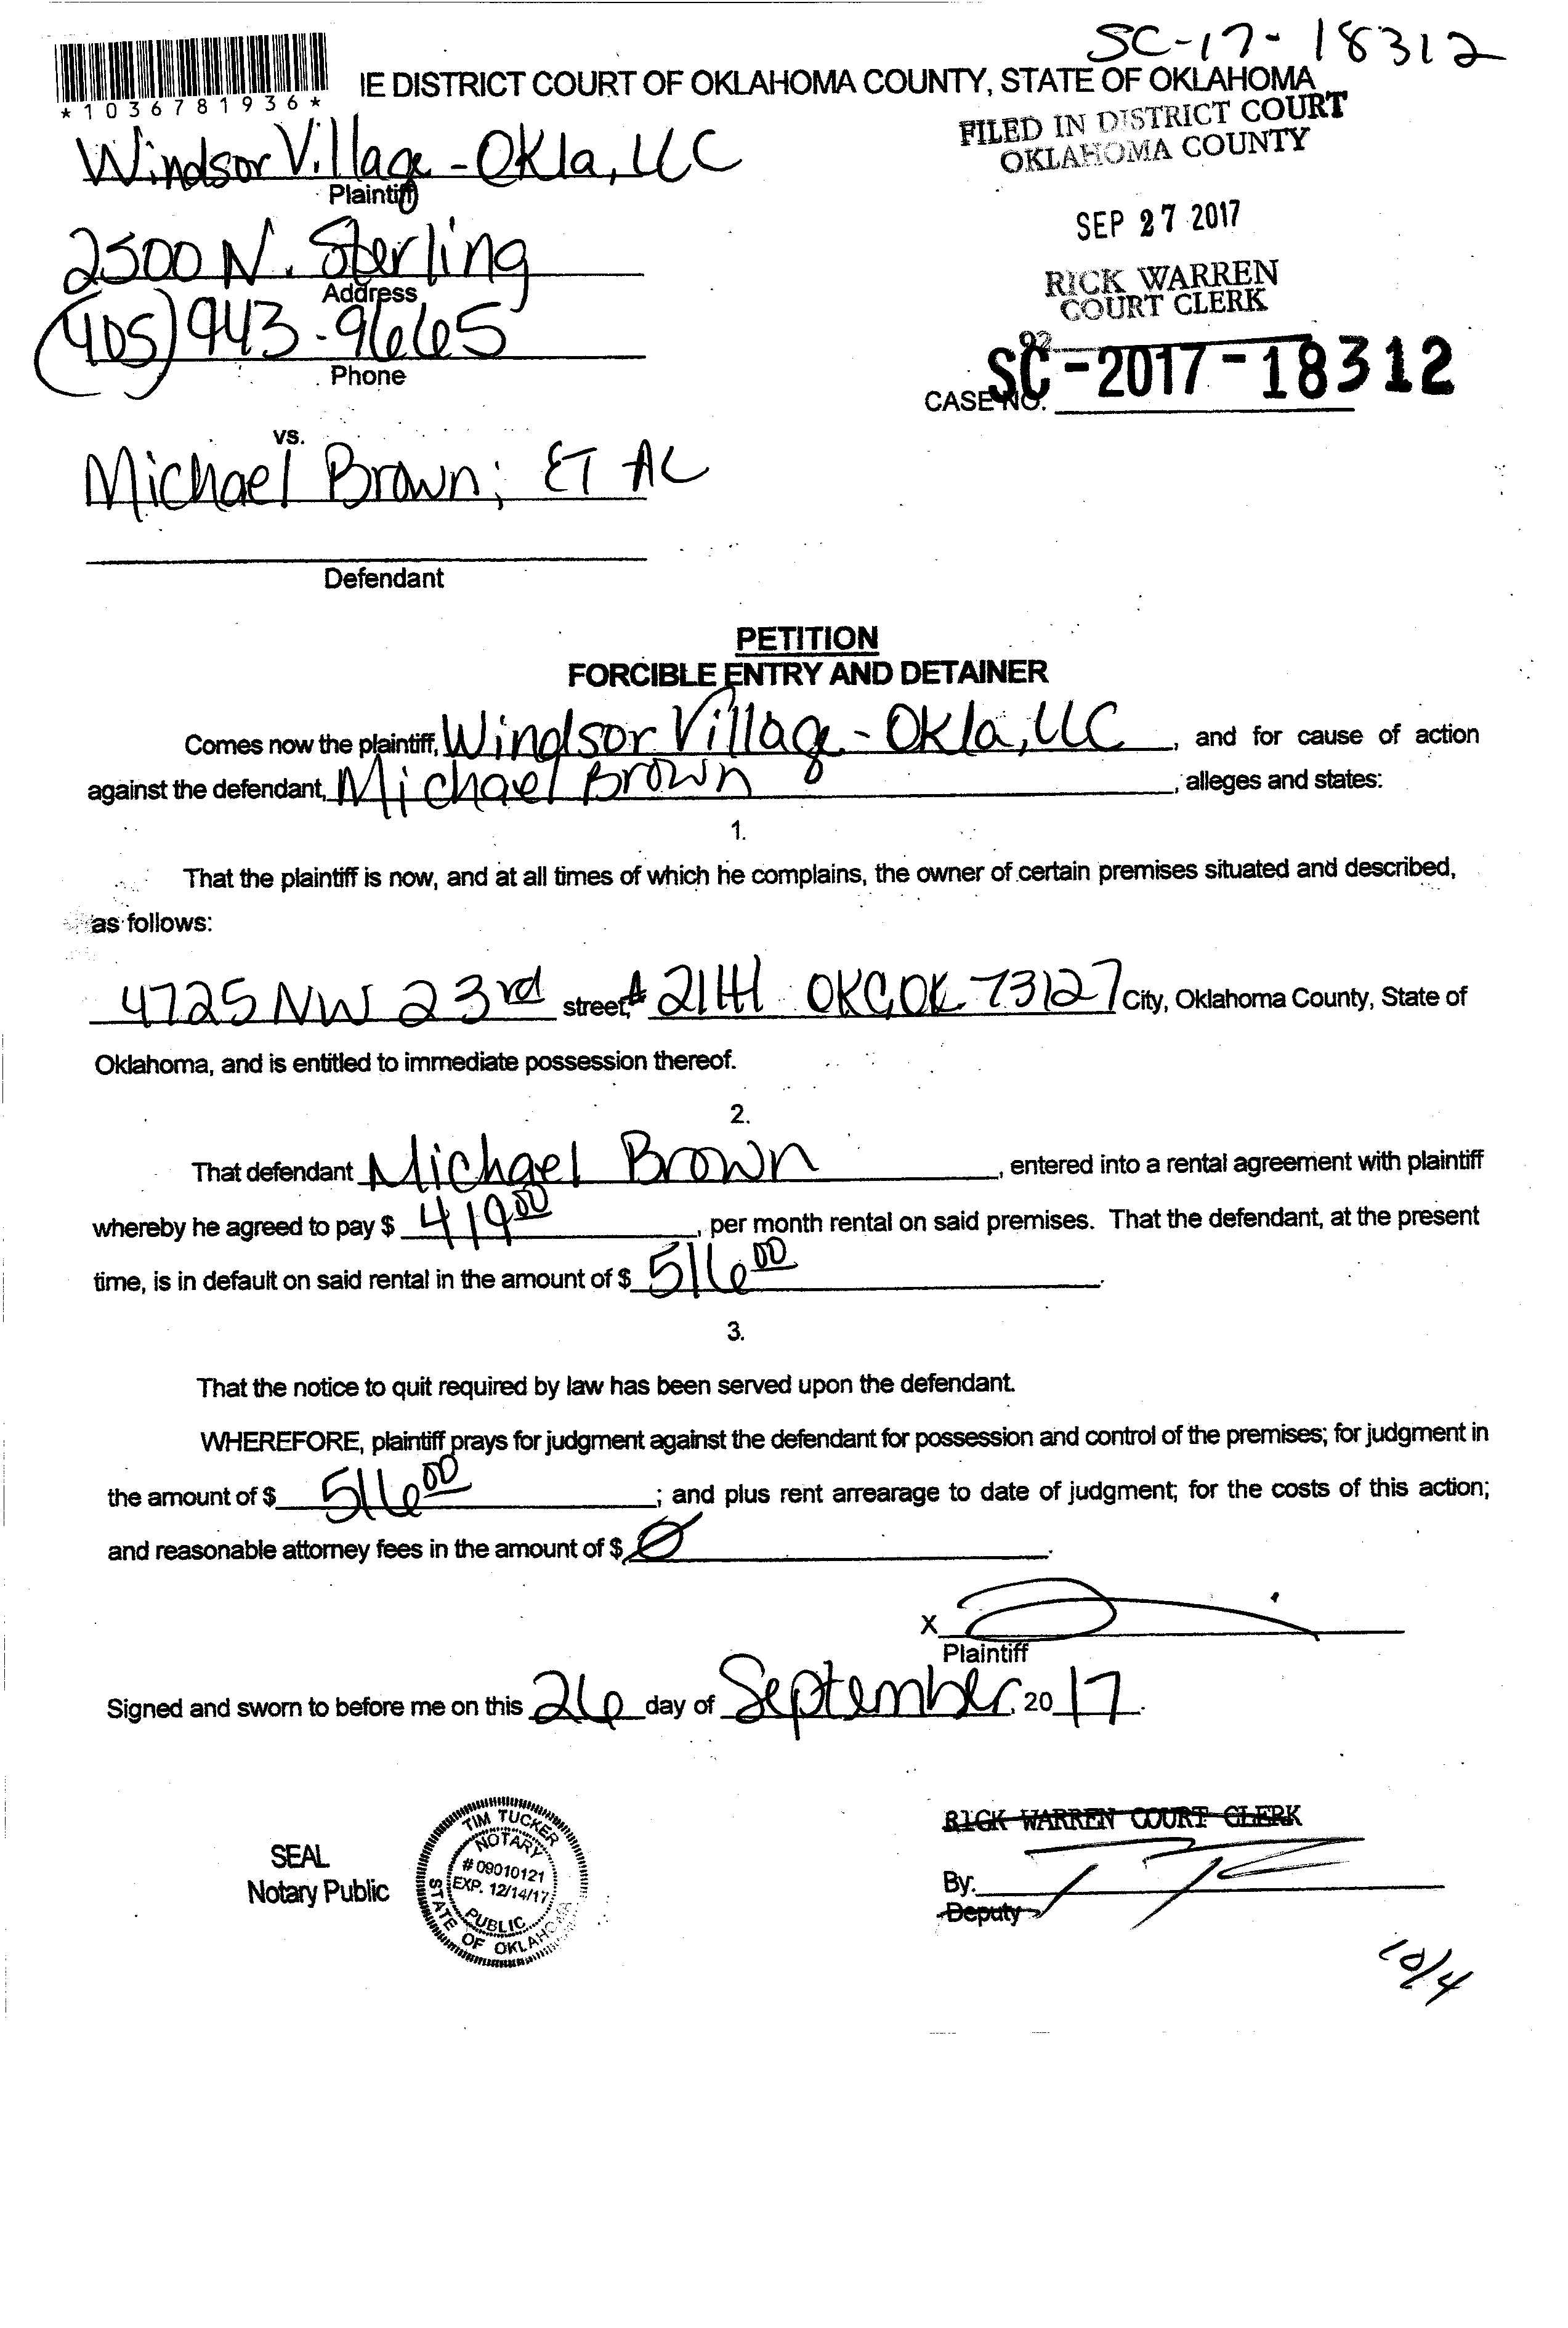 SC-17-18312
*1036781936*
IE DISTRICT COURT OF OKLAHOMA COUNTY, STATE OF OKLAHOMA
FILED IN DISTRICT COURT
OKLAHOMA COUNTY
Windsor Village - Okla, LLC
Plaintiff
SEP 27 2017
2500 N. Sterling
Address
RICK WARREN
COURT CLERK
(405) 943-9665
Phone
SC-2017-18312
CASE NO.
vs.
Michael Brown; ET AL
Defendant
PETITION
FORCIBLE ENTRY AND DETAINER
Comes now the plaintiff, Windsor Village - Okla, LLC, and for cause of action
against the defendant, Michael Brown, alleges and states:
1.
That the plaintiff is now, and at all times of which he complains, the owner of certain premises situated and described,
as follows:
4725 NW 23rd street, # OKC, OK 73127 City, Oklahoma County, State of
Oklahoma, and is entitled to immediate possession thereof.
2.
That defendant Michael Brown, entered into a rental agreement with plaintiff
whereby he agreed to pay $ 419 00, per month rental on said premises. That the defendant, at the present
time, is in default on said rental in the amount of $ 516 00.
3.
That the notice to quit required by law has been served upon the defendant.
WHEREFORE, plaintiff prays for judgment against the defendant for possession and control of the premises; for judgment in
the amount of $ 516 00; and plus rent arrearage to date of judgment; for the costs of this action;
and reasonable attorney fees in the amount of $ Ø.
X
Plaintiff
Signed and sworn to before me on this 26 day of September, 20 17.
RICK WARREN COURT CLERK
SEAL
Notary Public
TIM TUCKER
NOTARY
# 09010121
EXP. 12/14/17
PUBLIC
STATE OF OKLAHOMA
By:
Deputy
10/4